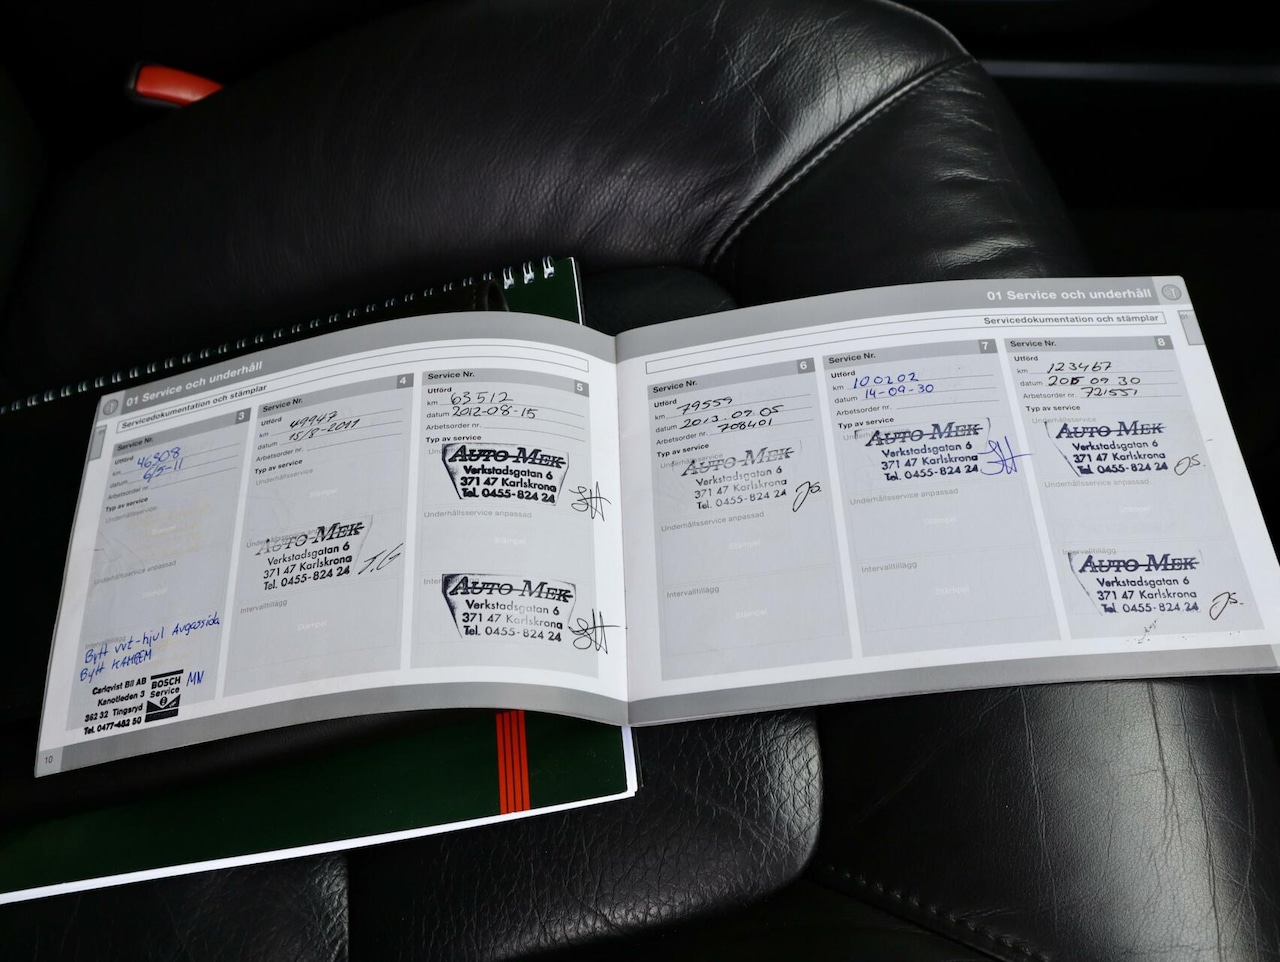 01 Service och underhåll
Servicedokumentation och stämplar
Service Nr.
3
Utförd
km 46508
datum 6/5-11
Arbetsorder nr.
Typ av service
Underhållsservice
Underhållsservice anpassad
Intervalltillägg
Bytt vvt-hjul Avgassida
Bytt KAMREM
MN
Carlqvist Bil AB
Kanotleden 3
362 32 Tingsryd
Tel. 0477-482 50
BOSCH
Service
10
Service Nr.
4
Utförd
km 49947
datum 15/8-2011
Arbetsorder nr.
Typ av service
Underhållsservice
Stämpel
AUTO MEK
Verkstadsgatan 6
371 47 Karlskrona
Tel. 0455-824 24
J.G
Intervalltillägg
Stämpel
Service Nr.
5
Utförd
km 63512
datum 2012-08-15
Arbetsorder nr.
Typ av service
AUTO MEK
Verkstadsgatan 6
371 47 Karlskrona
Tel. 0455-824 24
Underhållsservice anpassad
Stämpel
AUTO MEK
Verkstadsgatan 6
371 47 Karlskrona
Tel. 0455-824 24
01 Service och underhåll
Servicedokumentation och stämplar
Service Nr.
6
Utförd
km 79559
datum 2013.09.05
Arbetsorder nr. 708401
Typ av service
Underhållsservice
AUTO MEK
Verkstadsgatan 6
371 47 Karlskrona
Tel. 0455-824 24
JS.
Underhållsservice anpassad
Stämpel
Intervalltillägg
Stämpel
Service Nr.
7
Utförd
km 100202
datum 14-09-30
Arbetsorder nr.
Typ av service
AUTO MEK
Verkstadsgatan 6
371 47 Karlskrona
Tel. 0455-824 24
Underhållsservice anpassad
Stämpel
Intervalltillägg
Stämpel
Service Nr.
8
Utförd
km 123467
datum 2015 09 30
Arbetsorder nr. 721551
Typ av service
AUTO MEK
Verkstadsgatan 6
371 47 Karlskrona
Tel. 0455-824 24
JS.
Underhållsservice anpassad
Stämpel
Intervalltillägg
AUTO MEK
Verkstadsgatan 6
371 47 Karlskrona
Tel. 0455-824 24
JS.